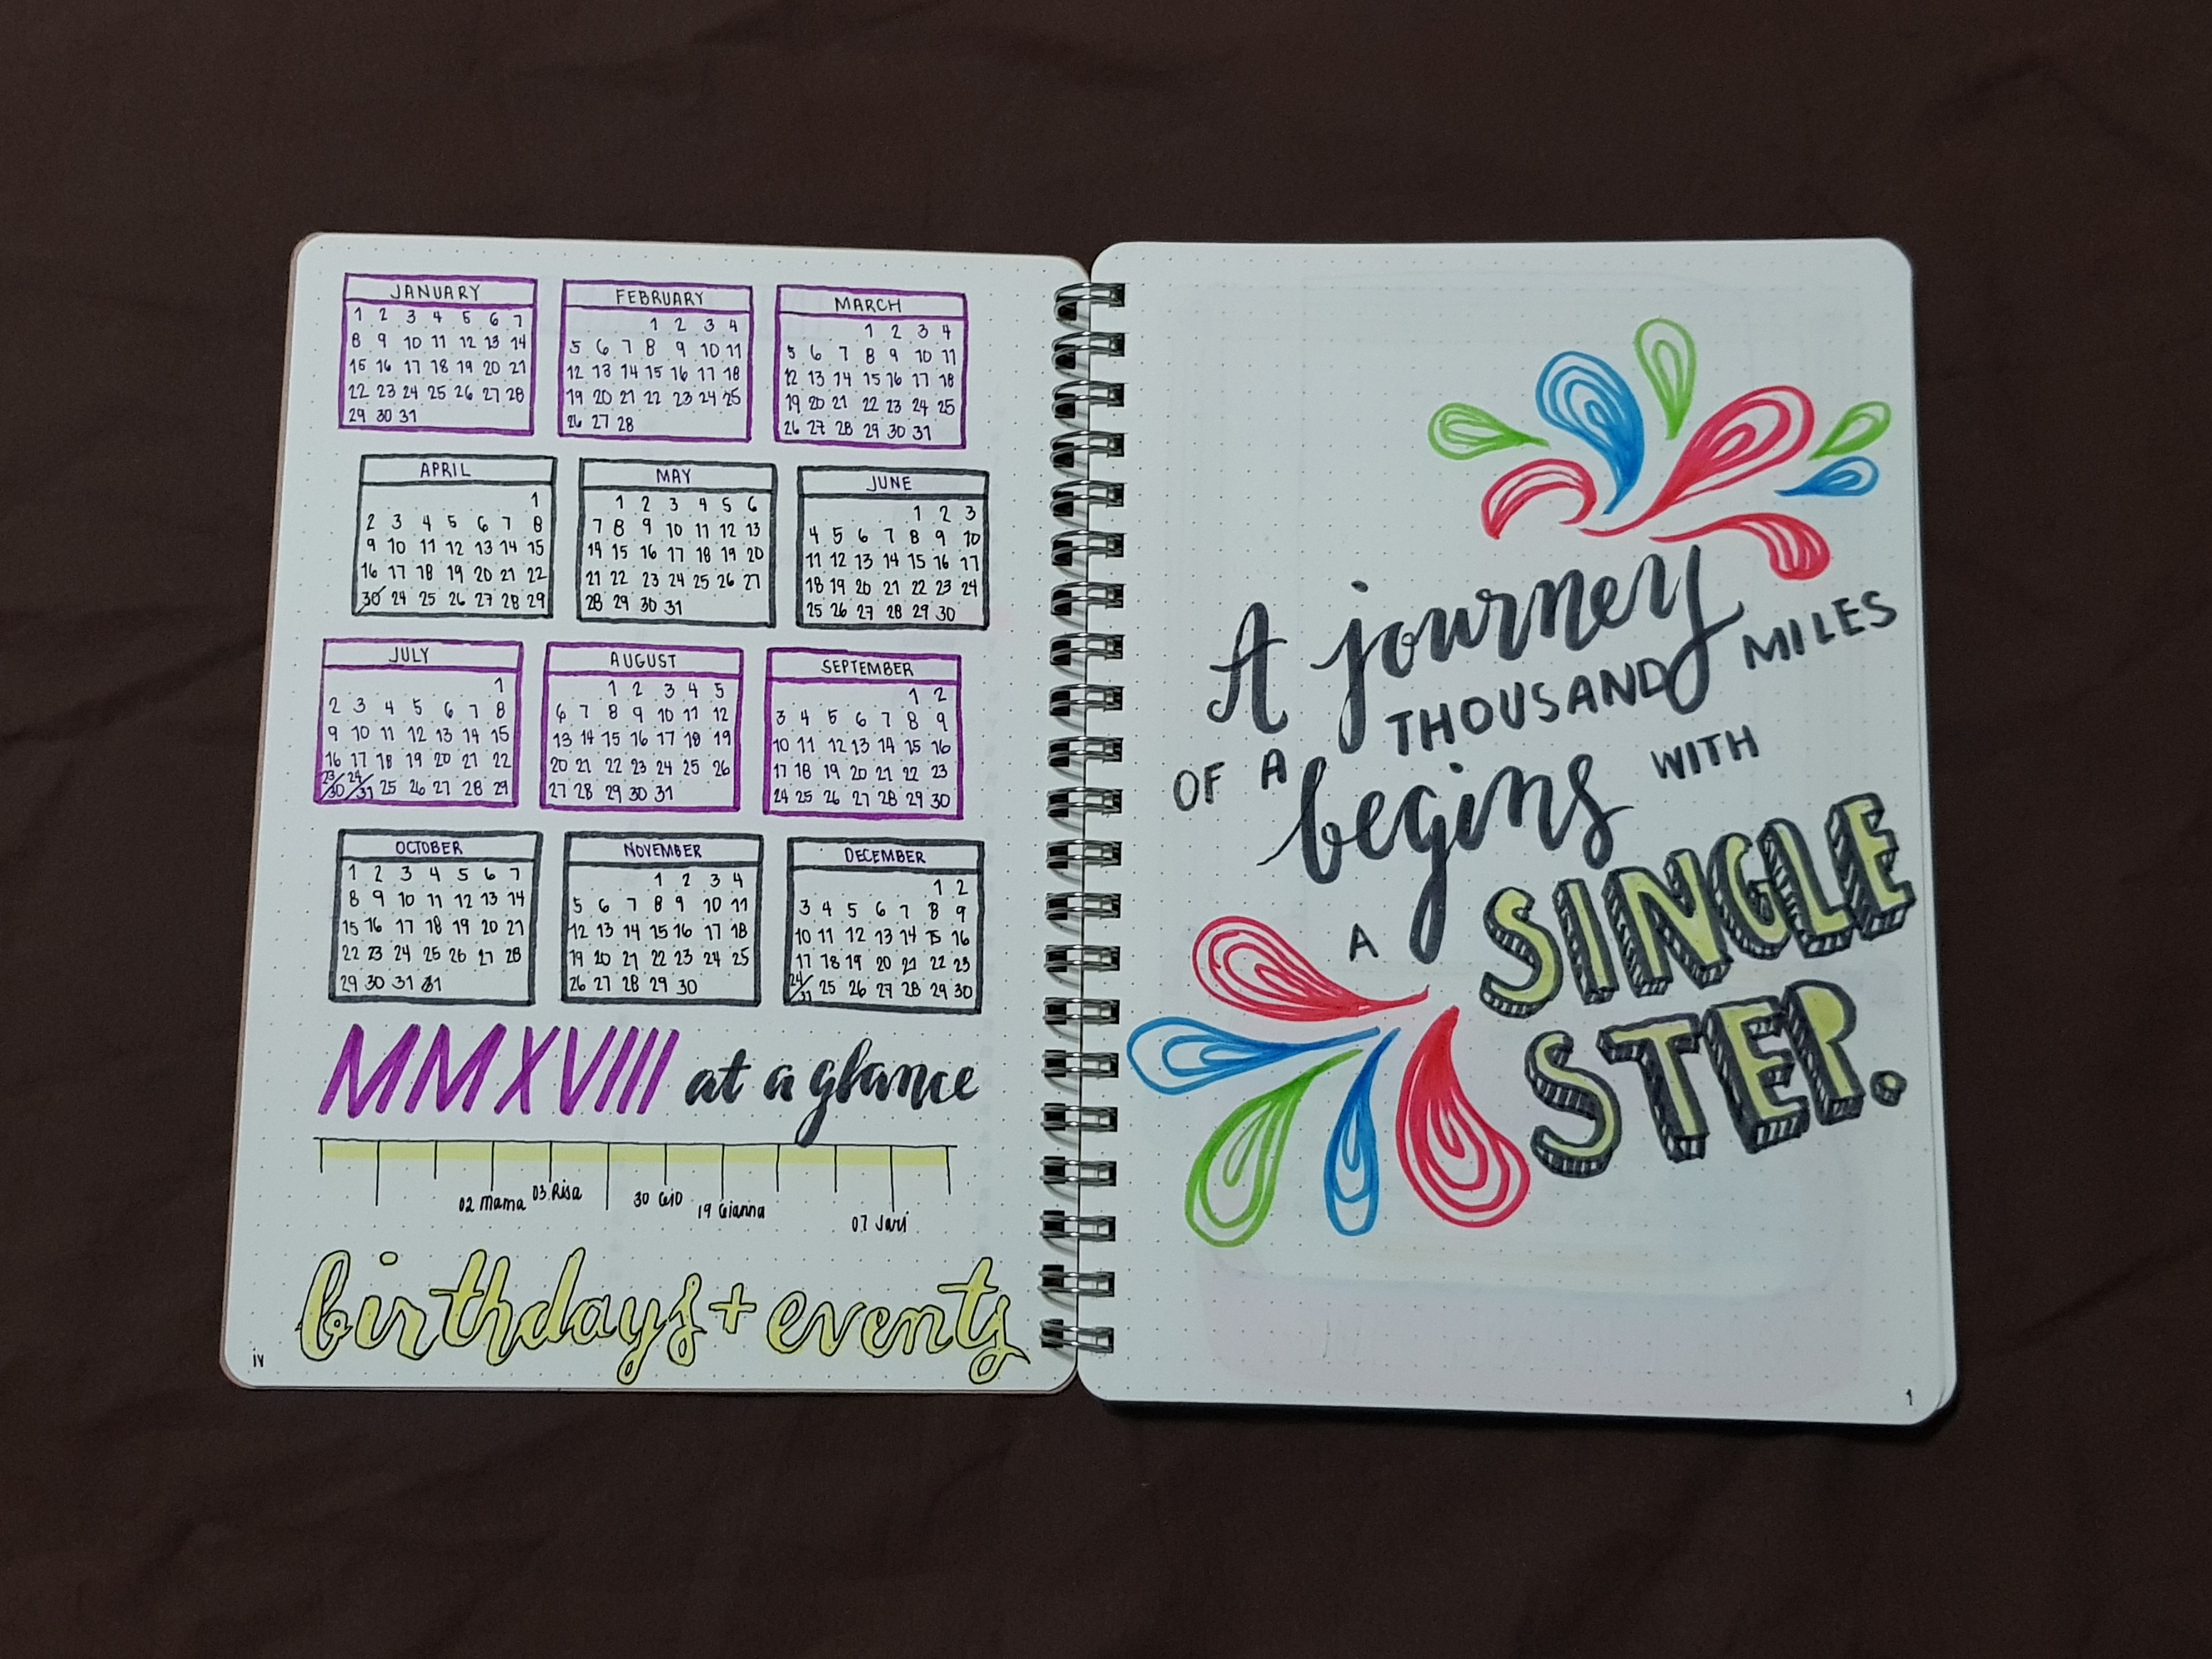 JANUARY
1 2 3 4 5 6 7
8 9 10 11 12 13 14
15 16 17 18 19 20 21
22 23 24 25 26 27 28
29 30 31
FEBRUARY
1 2 3 4
5 6 7 8 9 10 11
12 13 14 15 16 17 18
19 20 21 22 23 24 25
26 27 28
MARCH
1 2 3 4
5 6 7 8 9 10 11
12 13 14 15 16 17 18
19 20 21 22 23 24 25
26 27 28 29 30 31
APRIL
1
2 3 4 5 6 7 8
9 10 11 12 13 14 15
16 17 18 19 20 21 22
30 24 25 26 27 28 29
MAY
1 2 3 4 5 6
7 8 9 10 11 12 13
14 15 16 17 18 19 20
21 22 23 24 25 26 27
28 29 30 31
JUNE
1 2 3
4 5 6 7 8 9 10
11 12 13 14 15 16 17
18 19 20 21 22 23 24
25 26 27 28 29 30
JULY
1
2 3 4 5 6 7 8
9 10 11 12 13 14 15
16 17 18 19 20 21 22
23/30 24/31 25 26 27 28 29
AUGUST
1 2 3 4 5
6 7 8 9 10 11 12
13 14 15 16 17 18 19
20 21 22 23 24 25 26
27 28 29 30 31
SEPTEMBER
1 2
3 4 5 6 7 8 9
10 11 12 13 14 15 16
17 18 19 20 21 22 23
24 25 26 27 28 29 30
OCTOBER
1 2 3 4 5 6 7
8 9 10 11 12 13 14
15 16 17 18 19 20 21
22 23 24 25 26 27 28
29 30 31 31
NOVEMBER
1 2 3 4
5 6 7 8 9 10 11
12 13 14 15 16 17 18
19 20 21 22 23 24 25
26 27 28 29 30
DECEMBER
1 2
3 4 5 6 7 8 9
10 11 12 13 14 15 16
17 18 19 20 21 22 23
24/31 25 26 27 28 29 30
MMXVIII at a glance
02 Mama 03 Risa 30 Gio 19 Gianna 07 Jari
birthdays + events
iv
A journey
OF A THOUSAND MILES
begins WITH
A SINGLE
STEP.
1